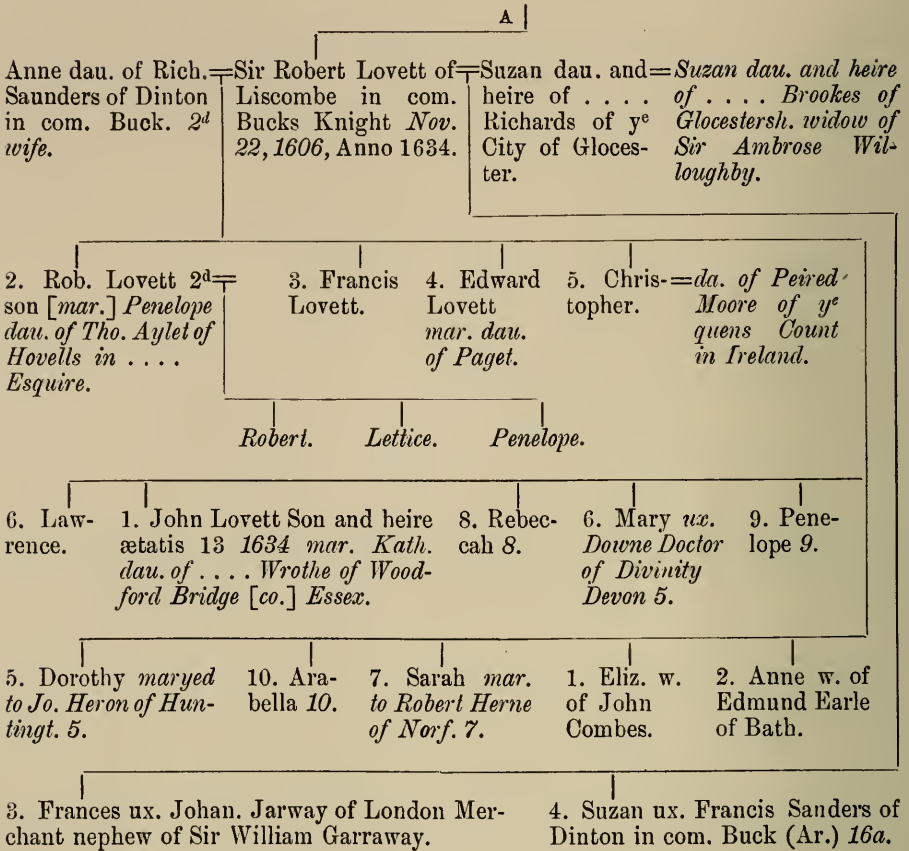 A
Anne dau. of Rich.
Saunders of Dinton
in com. Buck. 2d
wife.
Sir Robert Lovett of
Liscombe in com.
Bucks Knight Nov.
22, 1606, Anno 1634.
Suzan dau. and
heire of . . . .
Richards of ye
City of Gloces-
ter.
Suzan dau. and heire
of . . . . Brookes of
Glocestersh. widow of
Sir Ambrose Wil-
loughby.
2. Rob. Lovett 2d
son [mar.] Penelope
dau. of Tho. Aylet of
Hovells in . . . .
Esquire.
3. Francis
Lovett.
4. Edward
Lovett
mar. dau.
of Paget.
5. Chris-
topher.
da. of Peired
Moore of ye
quens Count
in Ireland.
Robert. Lettice. Penelope.
6. Law-
rence.
1. John Lovett Son and heire
ætatis 13 1634 mar. Kath.
dau. of . . . . Wrothe of Wood-
ford Bridge [co.] Essex.
8. Rebec-
cah 8.
6. Mary ux.
Downe Doctor
of Divinity
Devon 5.
9. Pene-
lope 9.
5. Dorothy maryed
to Jo. Heron of Hun-
tingt. 5.
10. Ara-
bella 10.
7. Sarah mar.
to Robert Herne
of Norf. 7.
1. Eliz. w.
of John
Combes.
2. Anne w. of
Edmund Earle
of Bath.
3. Frances ux. Johan. Jarway of London Mer-
chant nephew of Sir William Garraway.
4. Suzan ux. Francis Sanders of
Dinton in com. Buck (Ar.) 16a.